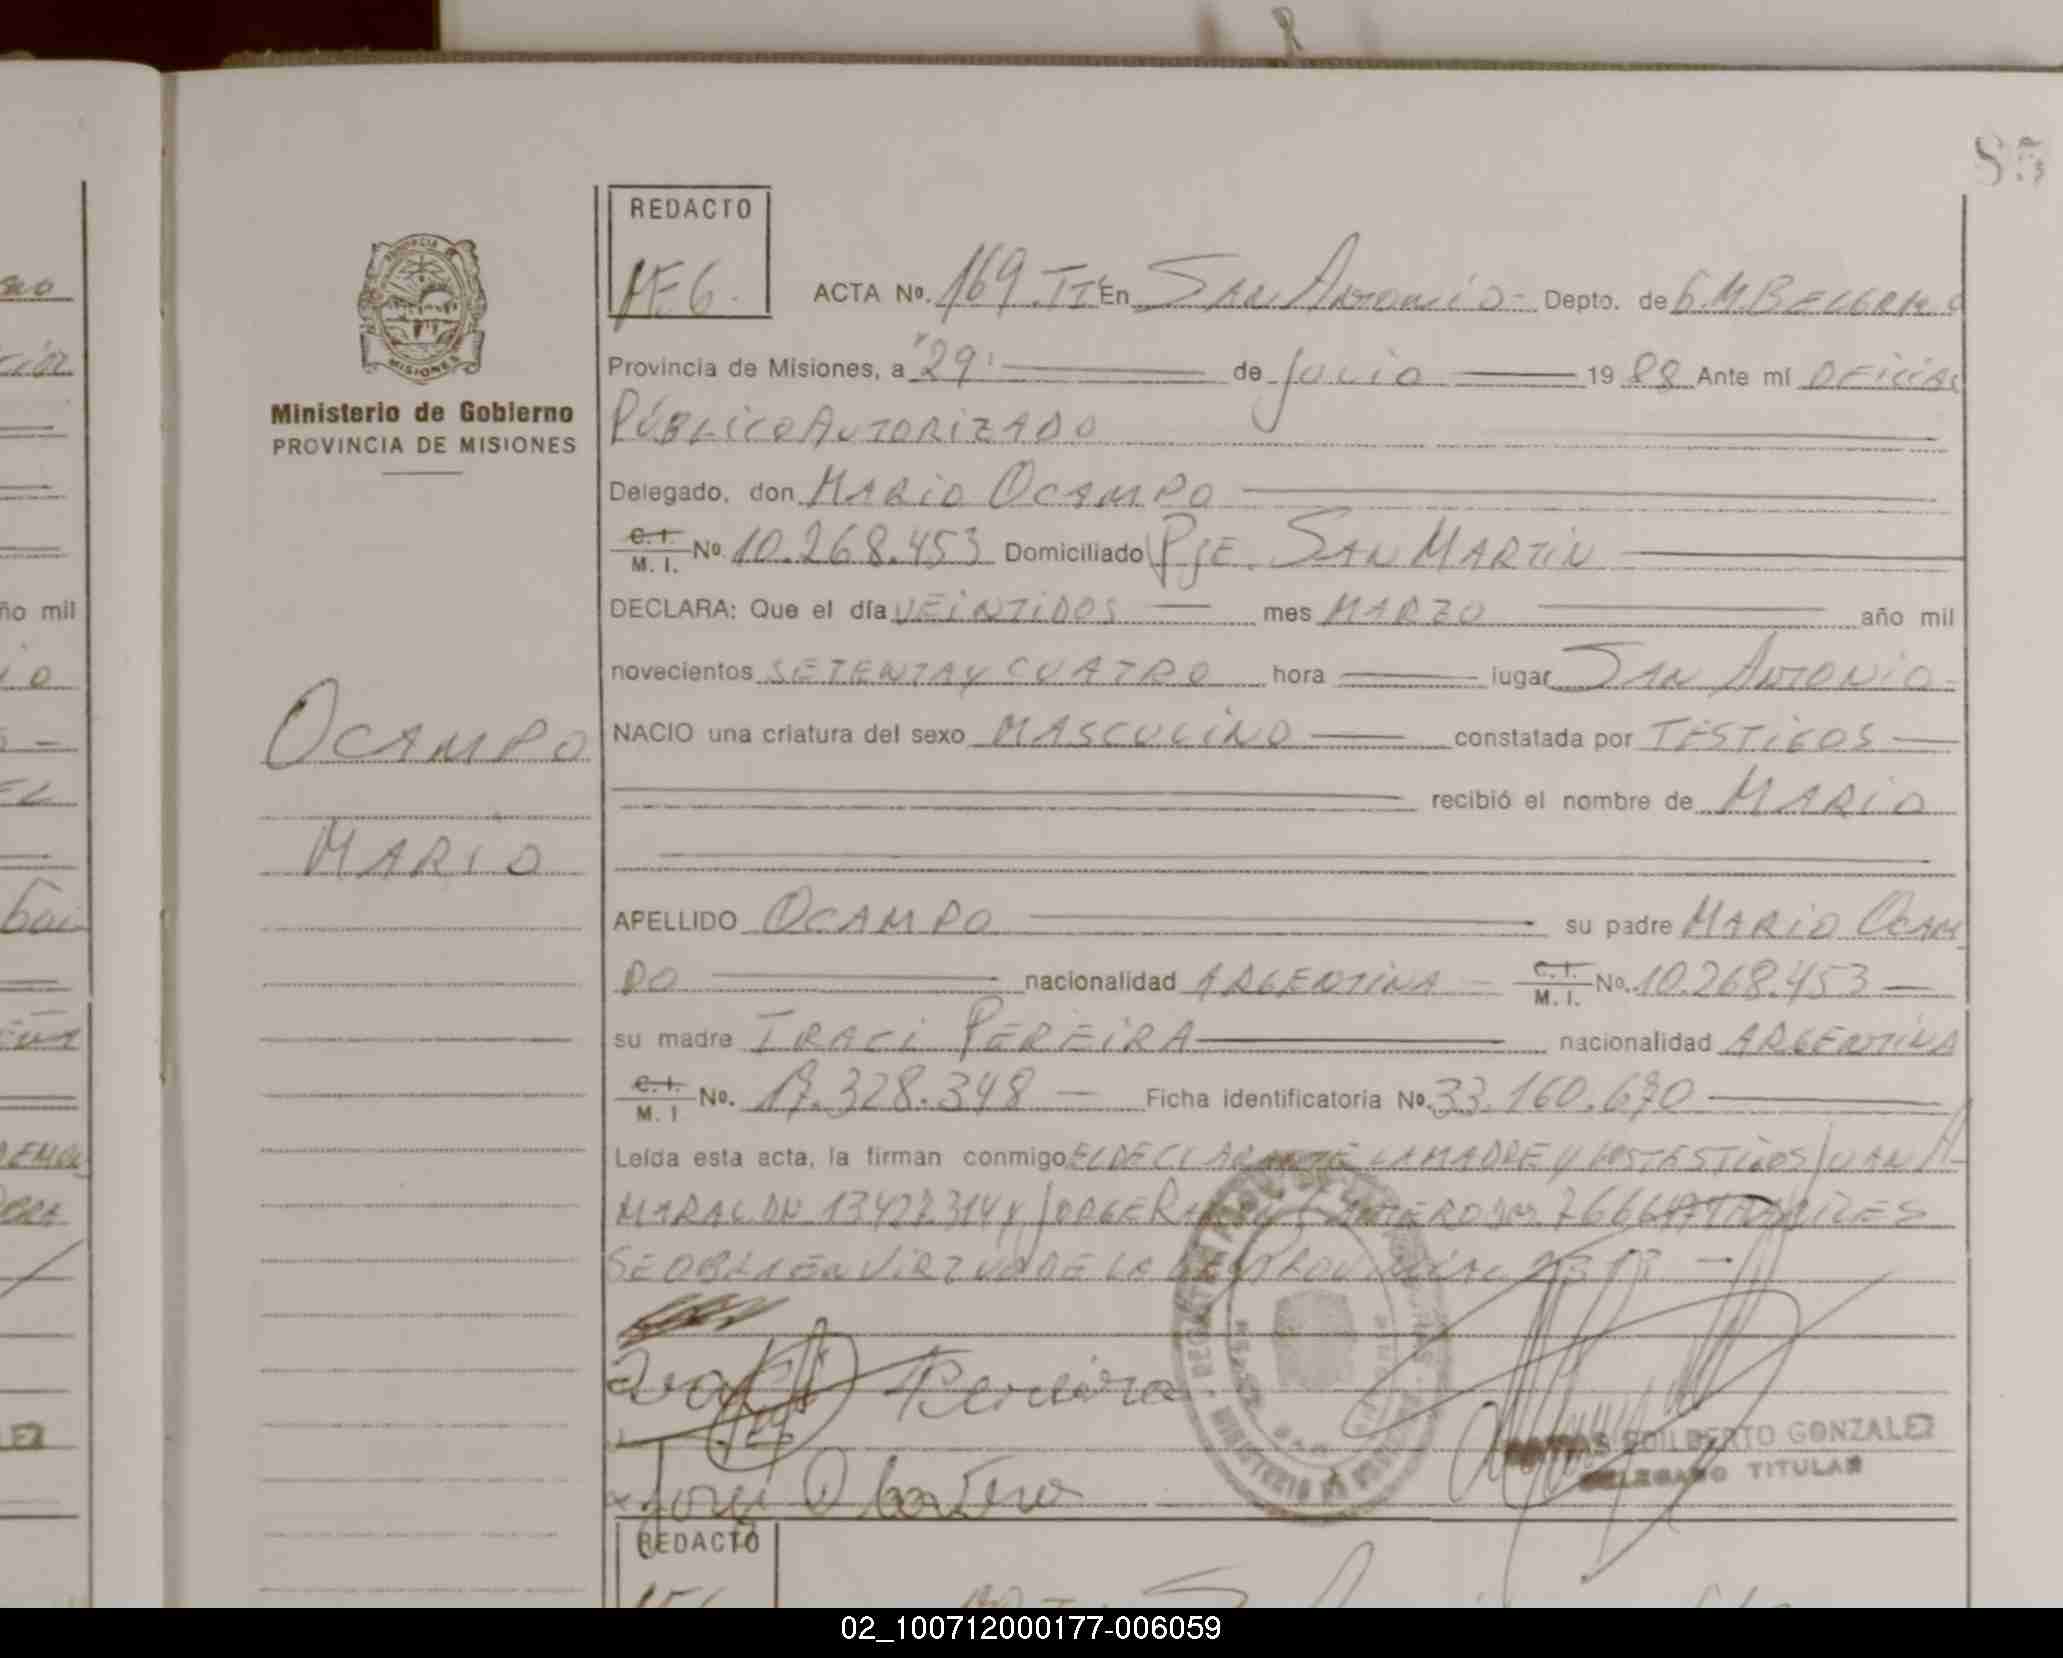 85
REDACTO
AEG.
ACTA Nº. 169. Tº I En SAN ANTONIO - Depto. de G.M.BELGRANO
Provincia de Misiones, a "29" de Julio 19 88 Ante mí OFICIAL
PÚBLICO AUTORIZADO
Ministerio de Gobierno
PROVINCIA DE MISIONES
Delegado, don MARIO OCAMPO
C. I. M. I. Nº 10.268.453 Domiciliado PJE. SAN MARTIN
DECLARA: Que el día VEINTIDOS mes MARZO año mil
novecientos SETENTA Y CUATRO hora lugar SAN ANTONIO-
OCAMPO
NACIO una criatura del sexo MASCULINO constatada por TESTIGOS
recibió el nombre de MARIO
MARIO
APELLIDO OCAMPO su padre MARIO OCAM
PO nacionalidad ARGENTINA - C. I. M. I. Nº. 10.268.453
su madre IRACI PEREIRA nacionalidad ARGENTINA
C. I. M. I Nº. 17.328.348 - Ficha identificatoria Nº. 33.160.670
Leída esta acta, la firman conmigo EL DECLARANTE LA MADRE Y LOS TESTIGOS JUAN A
MARAL DNI 13427314 Y JORGE
SE OBRA EN VIRTUD DE LA LEY PROVINCIAL
Pereira
GONZALEZ
DELEGADO TITULAR
REDACTO
02_100712000177-006059